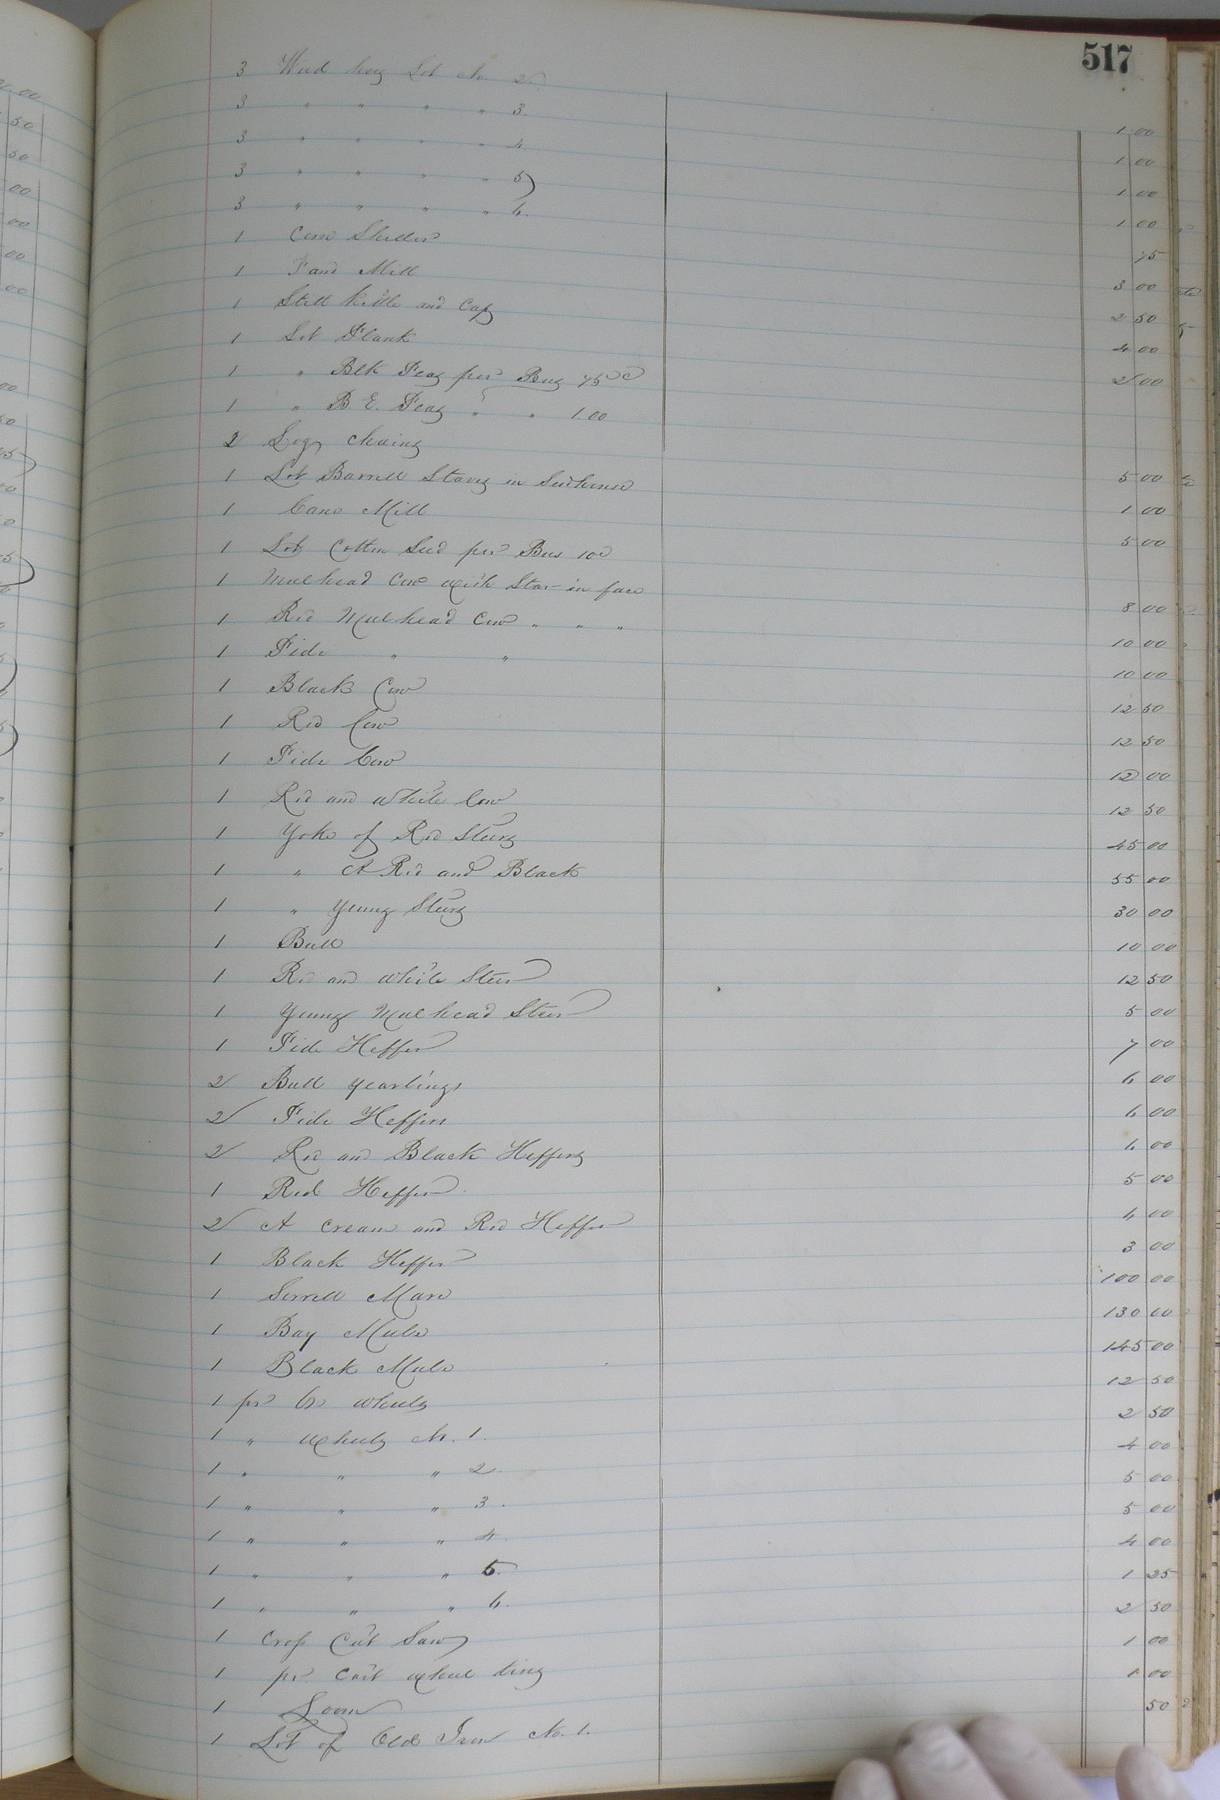 517
3 Weed hoes Lot No 2 1 00
3 " " " " 3. 1 00
3 " " " " 4. 1 00
3 " " " " 5 1 00
3 " " " " 6. 75
1 Corn Sheller 3 00
1 Fand Mill 2 50
1 Still Kittle and Cap 4 00
1 Lot Plank 2 00
1 " Blk Peas per Bus 75c
1 " B. E. Peas " " 1.00
2 Log chains 5 00
1 Lot Barrell Staves in 1 00
1 Cane Mill 5 00
1 Lot Cotton Seed per Bus 10c
1 Mulhead Cow with Star in face 8 00
1 Red Mulhead Cow " " " 10 00
1 Pide " " 10 00
1 Black Cow 12 50
1 Red Cow 12 50
1 Pide Cow 12 00
1 Red and White Cow 12 50
1 Yoke of Red Steers 45 00
1 " A Red and Black 55 00
1 " Young Steers 30 00
1 Bull 10 00
1 Red and White Steer 12 50
1 Young Mulhead Steer 5 00
1 Pide Heffer 7 00
2 Bull yearlings 6 00
2 Pide Heffers 6 00
2 Red and Black Heffers 6 00
1 Red Heffer 5 00
2 A cream and Red Heffer 4 00
1 Black Heffer 3 00
1 Sorrell Mare 100 00
1 Bay Mule 130 00
1 Black Mule 145 00
1 pr Ox wheels 12 50
1 " wheels No. 1. 2 50
1 " " " 2 4 00
1 " " " 3. 5 00
1 " " " 4. 5 00
1 " " " 5. 4 00
1 " " " 6. 1 25
1 Crop Cut Saw 2 50
1 pr Cart wheel 1 00
1 Loom 1 00
1 Lot of Old Iron No. 1. 50